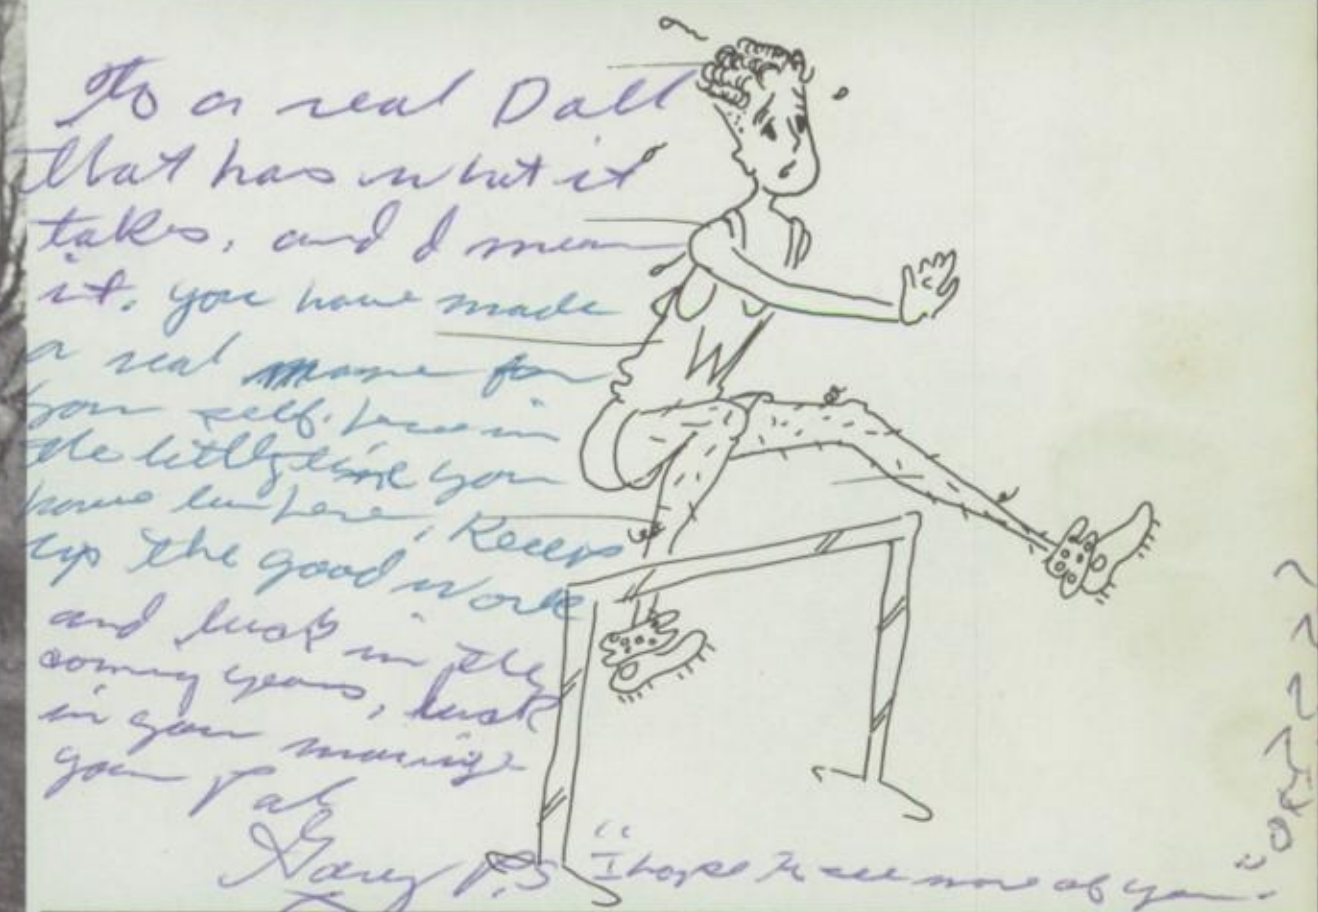 To a real Doll
that has what it
takes, and I mean
it, you have made
a real name for
your self. here in
the little time you
have been here, Keep
up the good work
and luck in the
coming years, luck
in your marriage
your Pal
Gary
P.S "I hope to see more of you".
W